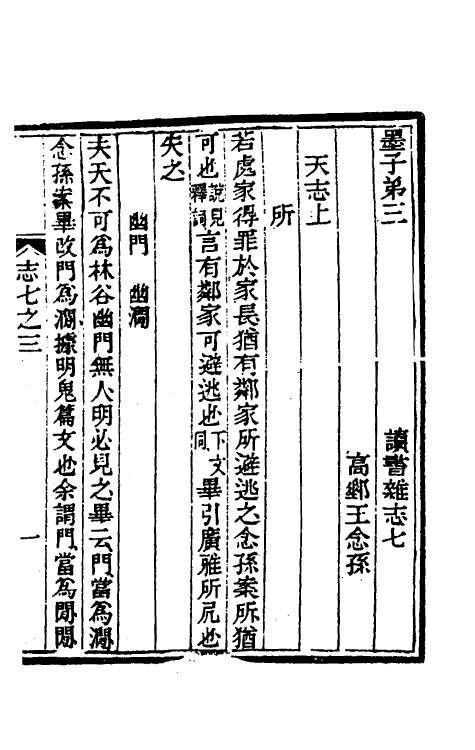 墨子弟三
讀書雜志七
高郵王念孫
天志上
所
若處家得罪於家長猶有鄰家所避逃之念孫案所猶
可也說見釋詞言有鄰家可避逃也下文同畢引廣雅所凥也
失之
幽門　幽澗
夫天不可爲林谷幽門無人明必見之畢云門當爲澗
念孫案畢改門爲澗據明鬼篇文也余謂門當爲閒閒
志七之三
一